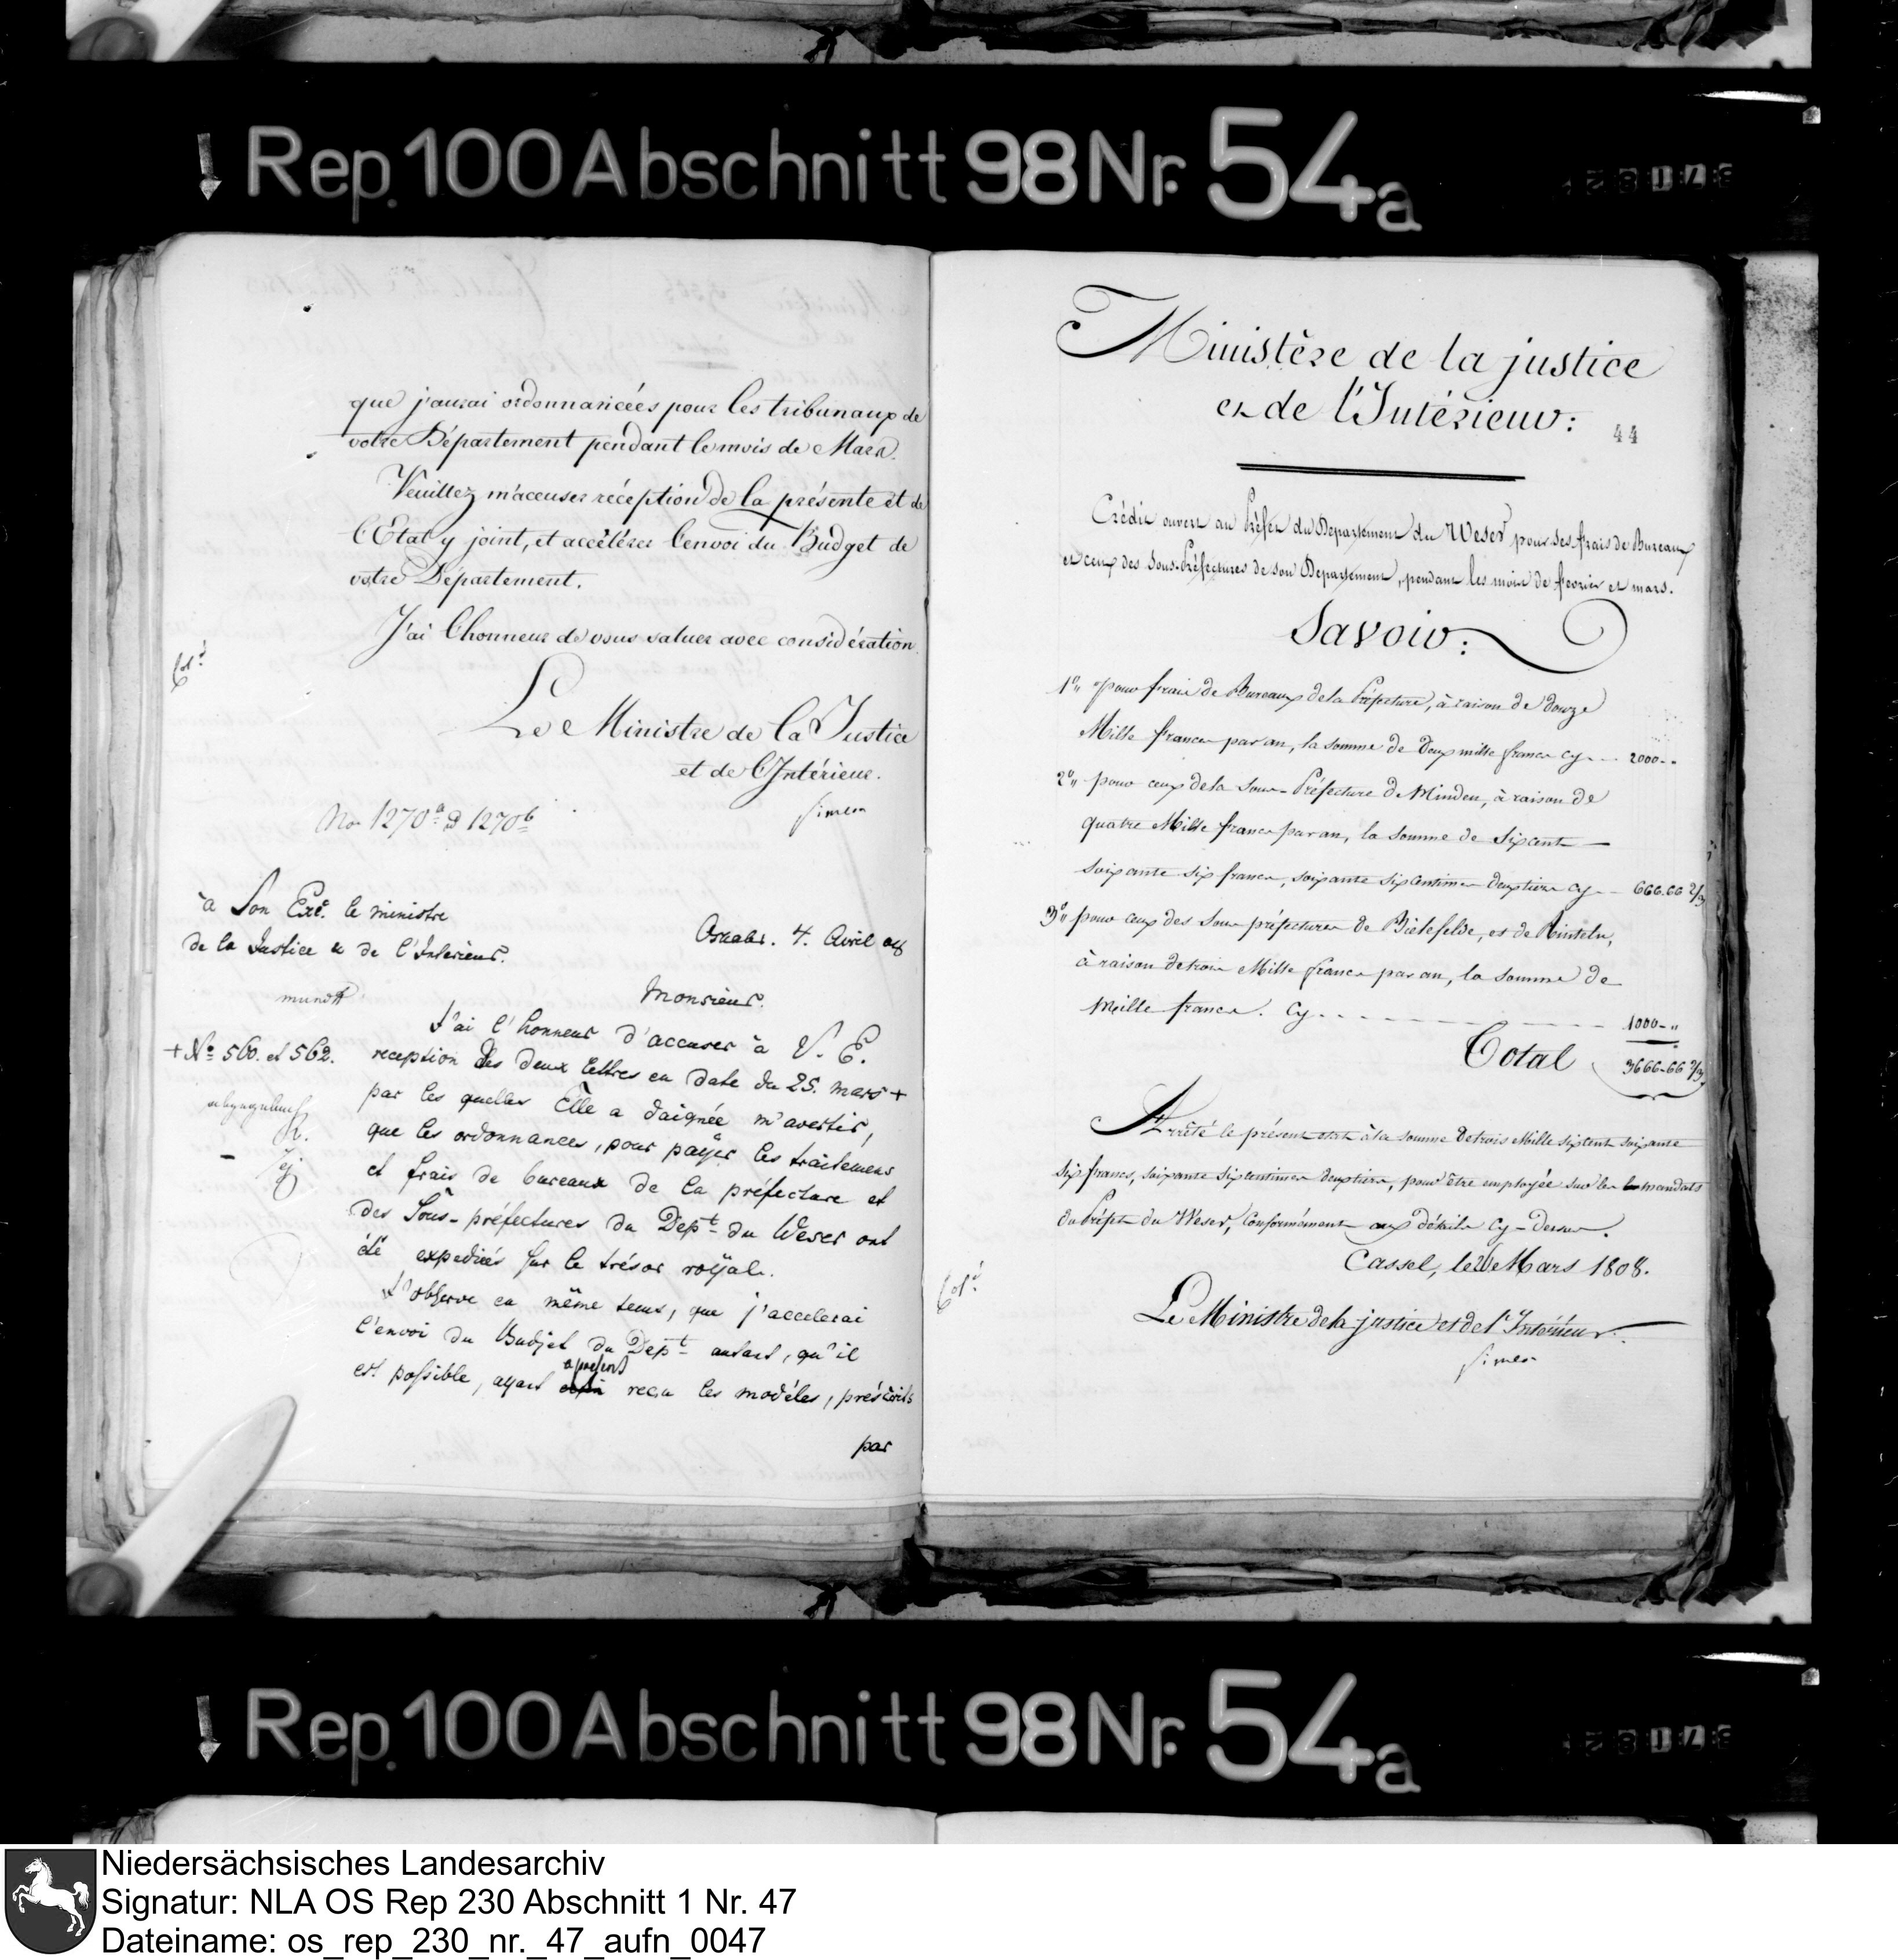 Rep. 100 Abschnitt 98 Nr. 54a
que j'aurai ordonnancées pour les tribunaux de
votre Département pendant le mois de Mars.
Veuillez m'accuser réception de la présente et de
l'Etat y joint, et accélérer l'envoi du Budget de
votre Département.
J'ai l'honneur de vous saluer avec considération.
Le Ministre de la Justice
et de l'Intérieur.
Simeon
No 1270a 1270b
à Son Exc. le ministre
de la Justice & de l'Interieur.
Osnabr. 4. Avril 08
Monsieur.
J'ai l'honneur d'accuser à V. E.
+ No 560. et 562.
reception des deux lettres en date du 25. mars +
par les quelles Elle a daignée m'avertir,
que les ordonnances, pour payer les traitemens
et frais de bureaux de la préfecture et
des Sous-préfectures du Dept du Weser ont
été expediées sur le trésor royal.
J'observe en même tems, que j'accelerai
l'envoi du Budjet du Dept autant, qu'il
est possible, ayant apresent reçu les modéles, préscrits
par
Ministère de la justice
et de l'Intérieur:
44
Crédit ouvert au Préfet du Departement du Weser pour ses frais de Bureaux
et ceux des Sous-Préfectures de son Departement, pendant les mois de fevrier et mars.
Savoir:
1° pour frais de Bureaux de la Préfecture, à raison de douze
Mille francs par an, la somme de deux mille francs cy... 2000..
2° pour ceux de la Sous-Préfecture de Minden, à raison de
quatre Mille francs par an, la somme de Six cent
soixante six francs, soixante six centimes deux tiers cy.. 666.66 2/3
3° pour ceux des Sous préfectures de Bielefelde, et de Rinteln,
à raison de trois Mille francs par an, la somme de
Mille francs. Cy. 1000..
Total 3666-66 2/3
Arrêté le présent état à la somme de trois Mille six cent soixante
six francs, soixante six centimes deux tiers, pour être employée sur les mandats
du Préfet du Weser, Conformément aux détails Cy-Dessus.
Cassel, le Mars 1808.
Le Ministre de la justice et de l'Intérieur.
Simeon
Rep. 100 Abschnitt 98 Nr. 54a
Niedersächsisches Landesarchiv
Signatur: NLA OS Rep 230 Abschnitt 1 Nr. 47
Dateiname: os_rep_230_nr._47_aufn_0047